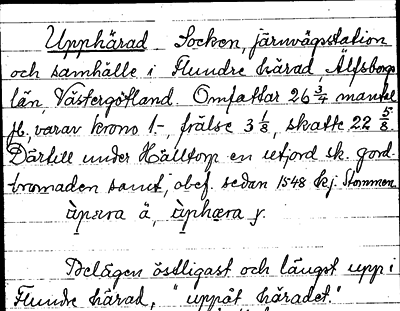 Upphärad Socken, järnvägsstation
och samhälle i Flundre härad, Älfsborgs
län, Västergötland. Omfattar 26 3/4 mantal
fl. varav krono 1.-, frälse 3 1/8, skatte 22 5/8.
Därtill under Hälltorp en utjord sk. gord-
tromaden samt, obef. sedan 1548 kj. Stommen.
àpæra ä, àphæra y.
Belägen östligast och längst upp i
Flundre härad, "uppåt häradet."